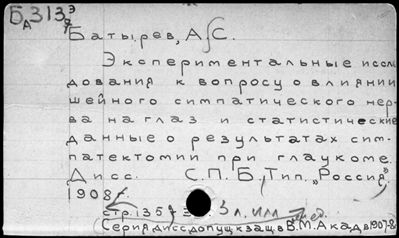 БА 313 э/9
Батырев, А. С.
Экспериментальные иссле
дования к вопросу о влиянии
шейного симпатического нер-
ва на глаз и статистические
данные о результатах сим-
патектомии при глаукоме.
Дисс. С.П.Б., Тип. „Россия".
1908 г.
стр. 135 3 л. илл
(Серия дисс. допущ. к защ. в В.М. Акад. в 1907-8